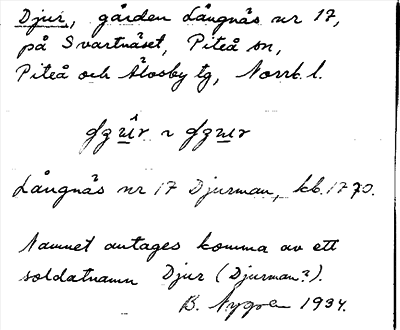 Djur, gården Långnäs nr 17,
på Svartnäset, Piteå sn,
Piteå och Älvsby tg, Norrb. l.
Långnäs nr 17 Djurman, kb. 1770.
Namnet antages komma av ett
soldatnamn Djur (Djurman?).
B. Nygren 1934.